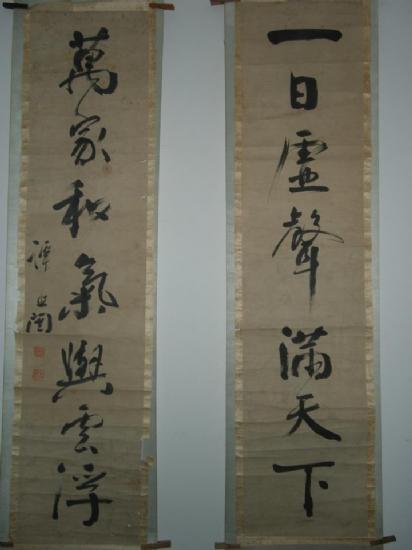 一日虛聲滿天下
萬家和氣與雲浮
譚延闓